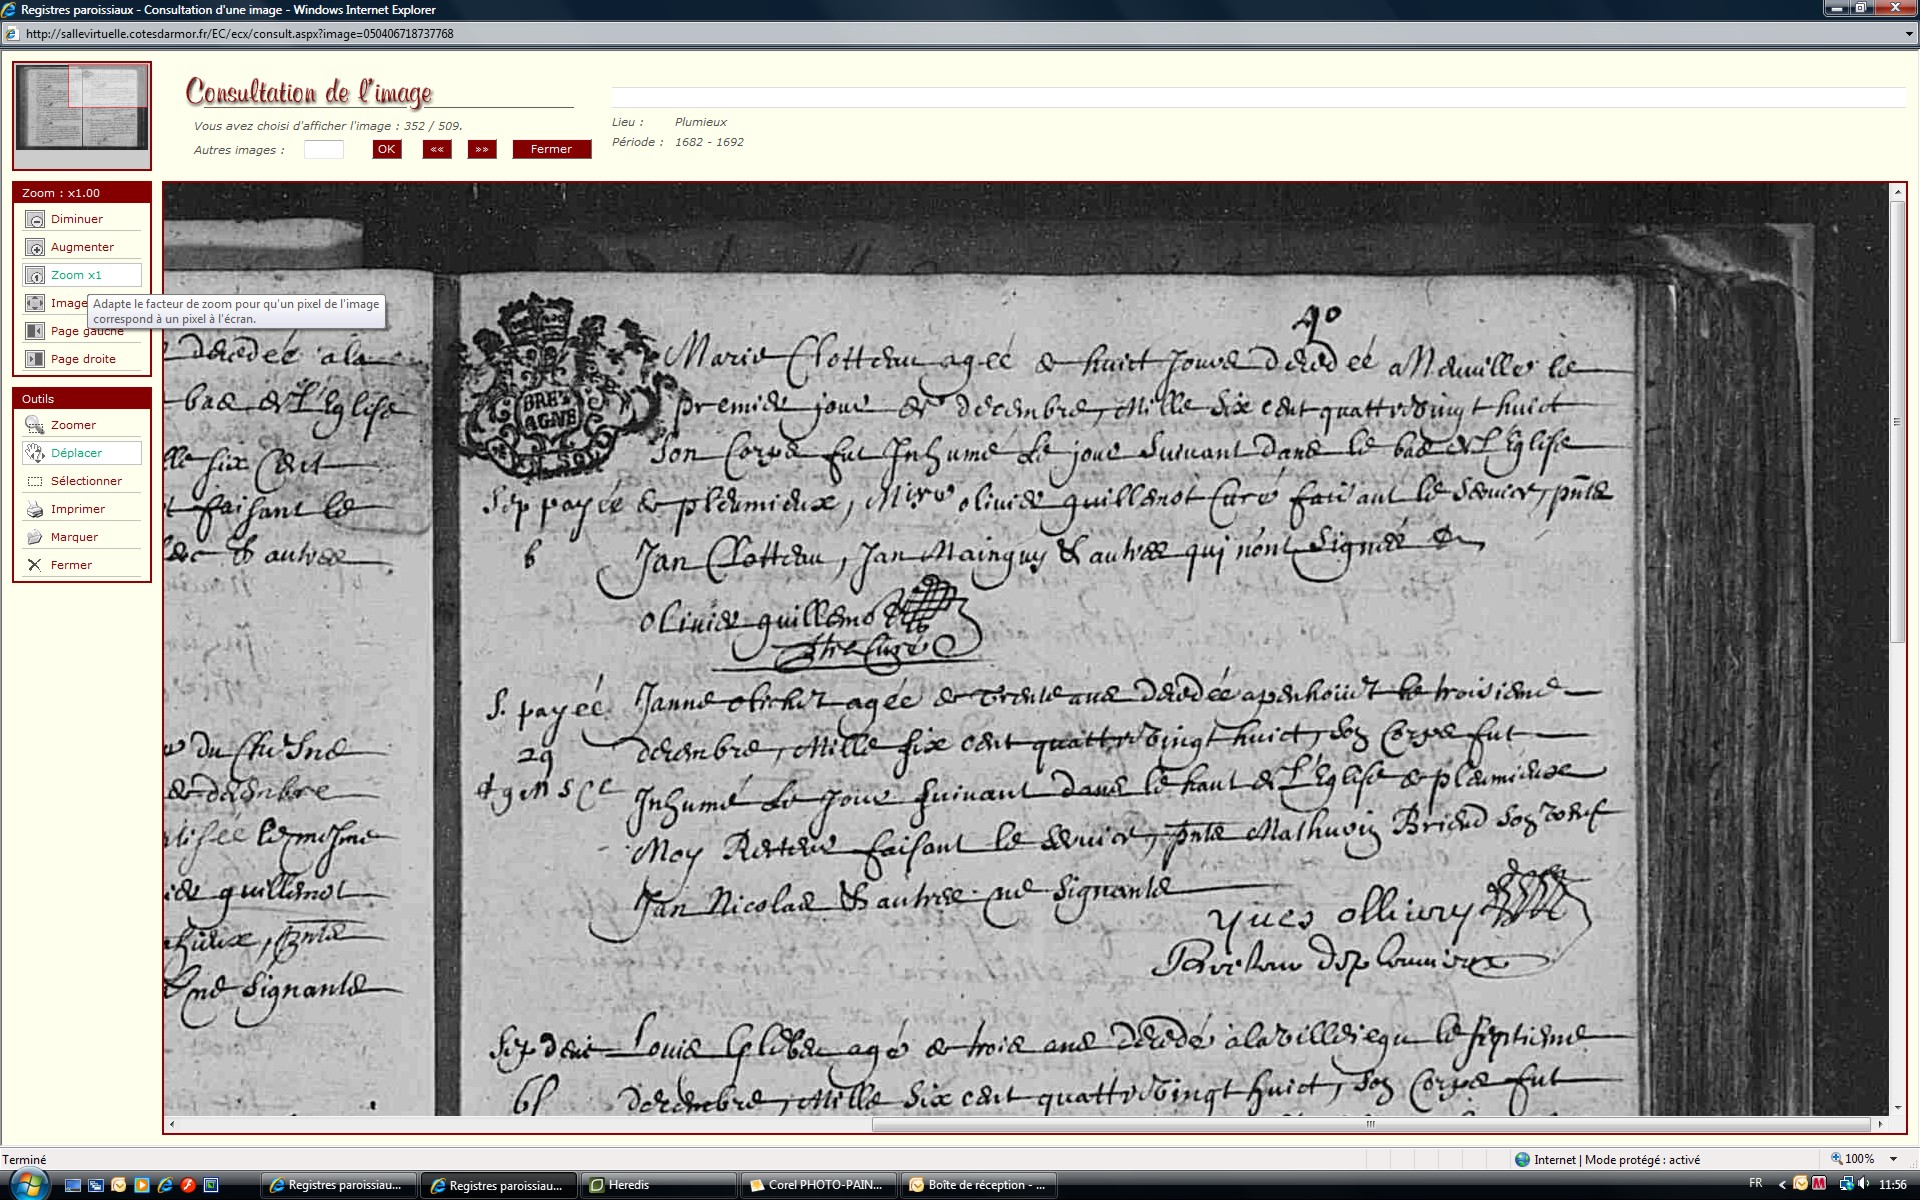 Registres paroissiaux - Consultation d'une image - Windows Internet Explorer
http://sallevirtuelle.cotesdarmor.fr/EC/ecx/consult.aspx?image=050406718737768
Consultation de l'image
Vous avez choisi d'afficher l'image : 352 / 509.
Autres images :
OK
««
»»
Fermer
Lieu : Plumieux
Période : 1682 - 1692
Zoom : x1.00
Diminuer
Augmenter
Zoom x1
Image
Adapte le facteur de zoom pour qu'un pixel de l'image
correspond à un pixel à l'écran.
Page gauche
Page droite
Outils
Zoomer
Déplacer
Sélectionner
Imprimer
Marquer
Fermer
decedée a la
bas de l'Eglise
lle six cent
t faisant le
& autres
du Chesne
de decembre
tisée le mesme
guillemot
ne signants
40
BRET
AGNE
Marie Clotteau agéé de huict jours decedéé a le
premier jour de decembre, Mille six cent quattrevingt huict
son Corps fut Inhumé Le jour suivant dans le bas de L'Eglise
de pleumieux, Mire olivier guillemot Curé faisant le service, pnts
6
Jan Clotteau, Jan Mainguy & autres qui n'ont signés
olivier guillemot
Curé
S. payéé
29
Janne agéé de trente ans decedée a le troisieme
decembre, Mille six cent quattrevingt huict, son Corps fut
Inhumé Le Jour suivant dans le haut de L'Eglise de pleumieux
Moy Recteur faisant le service, pnts Mathurin Briend son
Jan Nicolas & autres ne signants
yves ollivry
Recteur de ploumieux
Louis agé de trois ans decedé a la le septieme
decembre, Mille six cent quattrevingt huict, son Corps fut
Terminé
Internet | Mode protégé : activé
100%
Registres paroissiau...
Registres paroissiau...
Heredis
Corel PHOTO-PAIN...
Boîte de réception - ...
FR
11:56